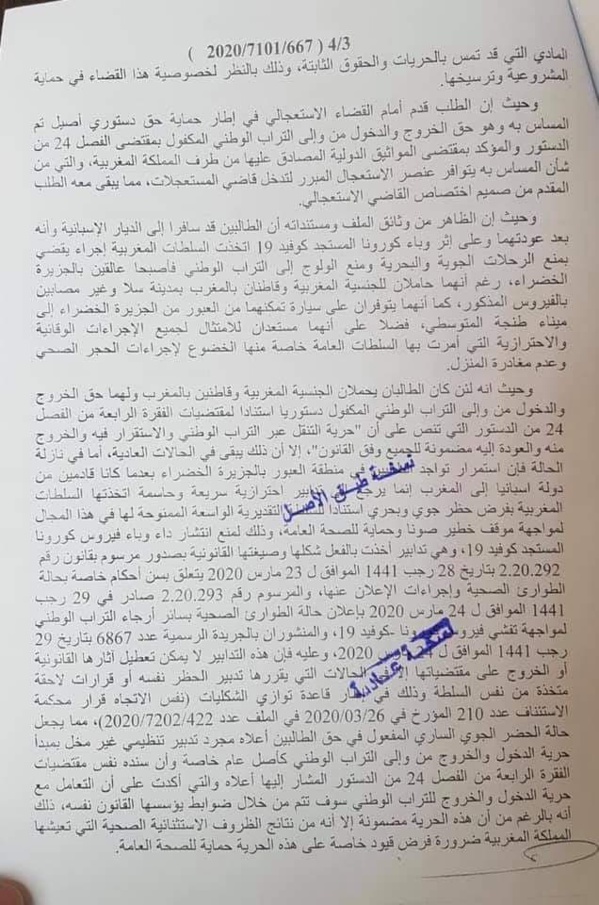 ( 2020/7101/667 ) 4/3
المادي التي قد تمس بالحريات والحقوق الثابتة، وذلك بالنظر لخصوصية هذا القضاء في حماية
المشروعية وترسيخها.
وحيث إن الطلب قدم أمام القضاء الاستعجالي في إطار حماية حق دستوري أصيل تم
المساس به وهو حق الخروج والدخول من وإلى التراب الوطني المكفول بمقتضى الفصل 24 من
الدستور والمؤكد بمقتضى المواثيق الدولية المصادق عليها من طرف المملكة المغربية، والتي من
شأن المساس به يتوافر عنصر الاستعجال المبرر لتدخل قاضي المستعجلات، مما يبقى معه الطلب
المقدم من صميم اختصاص القاضي الاستعجالي.
وحيث إن الظاهر من وثائق الملف ومستنداته أن الطالبين قد سافرا إلى الديار الإسبانية وأنه
بعد عودتهما وعلى إثر وباء كورونا المستجد كوفيد 19 اتخذت السلطات المغربية إجراء يقضي
بمنع الرحلات الجوية والبحرية ومنع الولوج إلى التراب الوطني فأصبحا عالقين بالجزيرة
الخضراء، رغم أنهما حاملان للجنسية المغربية وقاطنان بالمغرب بمدينة سلا وغير مصابين
بالفيروس المذكور، كما أنهما يتوفران على سيارة تمكنهما من العبور من الجزيرة الخضراء إلى
ميناء طنجة المتوسطي، فضلا على أنهما مستعدان للامتثال لجميع الإجراءات الوقائية
والاحترازية التي أمرت بها السلطات العامة خاصة منها الخضوع لإجراءات الحجر الصحي
وعدم مغادرة المنزل.
وحيث انه لئن كان الطالبان يحملان الجنسية المغربية وقاطنين بالمغرب ولهما حق الخروج
والدخول من وإلى التراب الوطني المكفول دستوريا استنادا لمقتضيات الفقرة الرابعة من الفصل
24 من الدستور التي تنص على أن "حرية التنقل عبر التراب الوطني والاستقرار فيه والخروج
منه والعودة إليه مضمونة للجميع وفق القانون"، إلا أن ذلك يبقى في الحالات العادية، أما في نازلة
الحالة فإن استمرار تواجد في منطقة العبور بالجزيرة الخضراء بعدما كانا قادمين من
دولة اسبانيا إلى المغرب إنما يرجع تدابير احترازية سريعة وحاسمة اتخذتها السلطات
المغربية بفرض حظر جوي وبحري استنادا التقديرية الواسعة الممنوحة لها في هذا المجال
لمواجهة موقف خطير صونا وحماية للصحة العامة، وذلك لمنع انتشار داء وباء فيروس كورونا
المستجد كوفيد 19، وهي تدابير أخذت بالفعل شكلها وصيغتها القانونية بصدور مرسوم بقانون رقم
2.20.292 بتاريخ 28 رجب 1441 الموافق ل 23 مارس 2020 يتعلق بسن أحكام خاصة بحالة
الطوارئ الصحية وإجراءات الإعلان عنها، والمرسوم رقم 2.20.293 صادر في 29 رجب
1441 الموافق ل 24 مارس 2020 بإعلان حالة الطوارئ الصحية بسائر أرجاء التراب الوطني
لمواجهة تفشي فيروس -كوفيد 19، والمنشوران بالجريدة الرسمية عدد 6867 بتاريخ 29
رجب 1441 الموافق ل 2020، وعليه فإن هذه التدابير لا يمكن تعطيل آثارها القانونية
أو الخروج على مقتضياتها الحالات التي يقررها تدبير الحظر نفسه أو قرارات لاحقة
متخذة من نفس السلطة وذلك في قاعدة توازي الشكليات (نفس الاتجاه قرار محكمة
الاستئناف عدد 210 المؤرخ في 2020/03/26 في الملف عدد 2020/7202/422)، مما يجعل
حالة الحضر الجوي الساري المفعول في حق الطالبين أعلاه مجرد تدبير تنظيمي غير مخل بمبدأ
حرية الدخول والخروج من وإلى التراب الوطني كأصل عام خاصة وأن سنده نفس مقتضيات
الفقرة الرابعة من الفصل 24 من الدستور المشار إليها أعلاه والتي أكدت على أن التعامل مع
حرية الدخول والخروج للتراب الوطني سوف تتم من خلال ضوابط يؤسسها القانون نفسه، ذلك
أنه بالرغم من أن هذه الحرية مضمونة إلا أنه من نتائج الظروف الاستثنائية الصحية التي تعيشها
المملكة المغربية ضرورة فرض قيود خاصة على هذه الحرية حماية للصحة العامة.
نسخة طبق الأصل